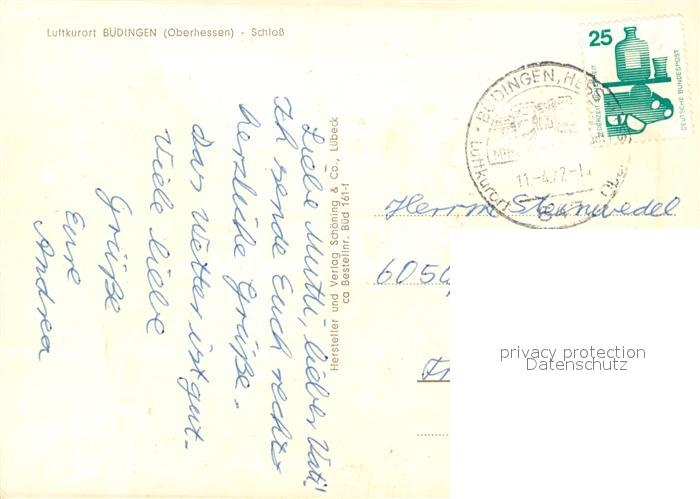 Luftkurort BÜDINGEN (Oberhessen) - Schloß
Liebe Mutti, lieber Vati!
Ich sende Euch recht
herzliche Grüße.
Das Wetter ist gut.
Viele liebe
Grüße
Eure
Andrea
Hersteller und Verlag Schöning & Co., Lübeck
ca Bestellnr. Büd 161-f
25
DEUTSCHE BUNDESPOST
JEDERZEIT
BÜDINGEN, HESS
11.-4.72-1
Luftkurort
Herrn Steinwedel
6050
privacy protection
Datenschutz